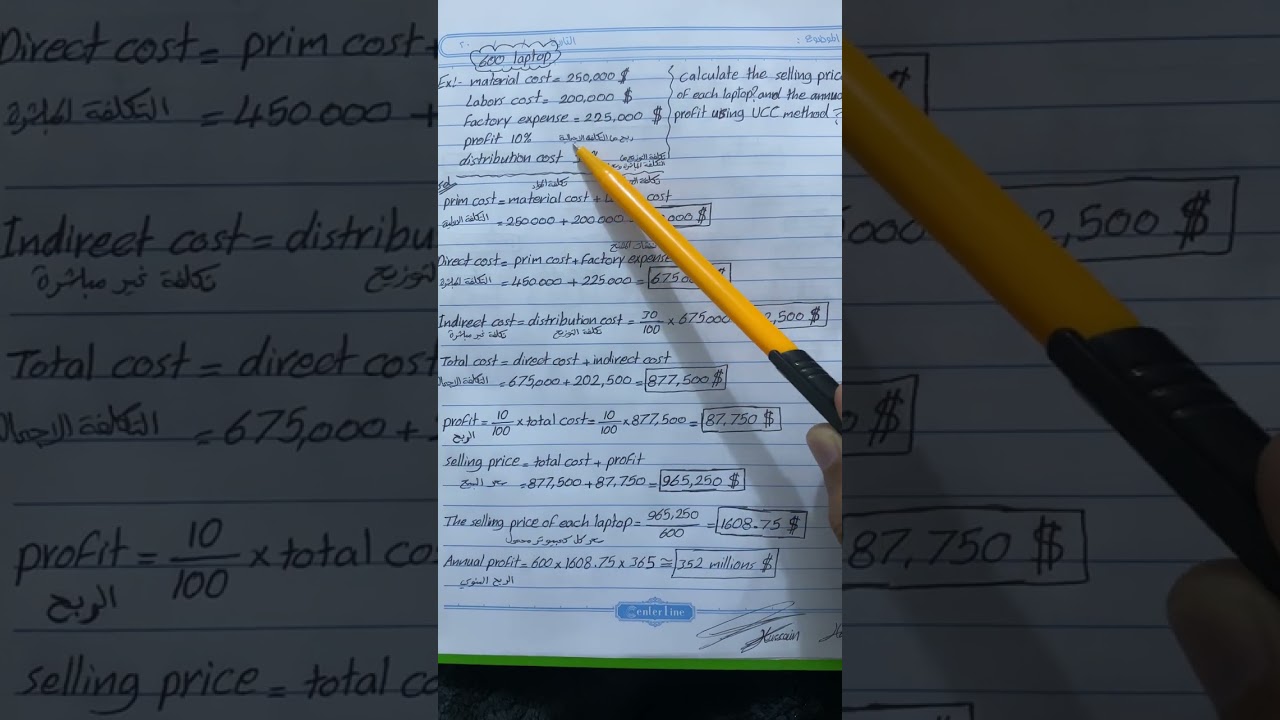 600 laptop
Ex:- material cost = 250,000 $
Labors cost = 200,000 $
Factory expense = 225,000 $
profit 10% ربح من التكلفة الاجمالية
distribution cost
calculate the selling pric
of each laptop? and the annua
profit using UCC method?
prim cost = material cost + cost
التكلفة الاولية = 250000 + 200000 000 $
Direct cost = prim cost + Factory expense
التكلفة المباشرة = 450000 + 225000 = 675
Indirect cost = distribution cost = 30/100 × 675000 2,500 $
تكلفة غير مباشرة تكلفة التوزيع
Total cost = direct cost + indirect cost
= 675,000 + 202,500 = 877,500 $
profit = 10/100 × total cost = 10/100 × 877,500 = 87,750 $
الربح
selling price = total cost + profit
سعر البيع = 877,500 + 87,750 = 965,250 $
The selling price of each laptop = 965,250/600 = 1608.75 $
سعر كل كمبيوتر محمول
Annual profit = 600 × 1608.75 × 365 ≅ 352 millions $
الربح السنوي
enterline
Hussain